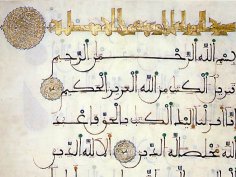 بسم الله الرحمن الرحيم
تنزيل الكتب من الله العزيز الحكيم
إنا أنزلنا إليك الكتب بالحق فاعبد
الله مخلصا له الدين ألا لله الدين